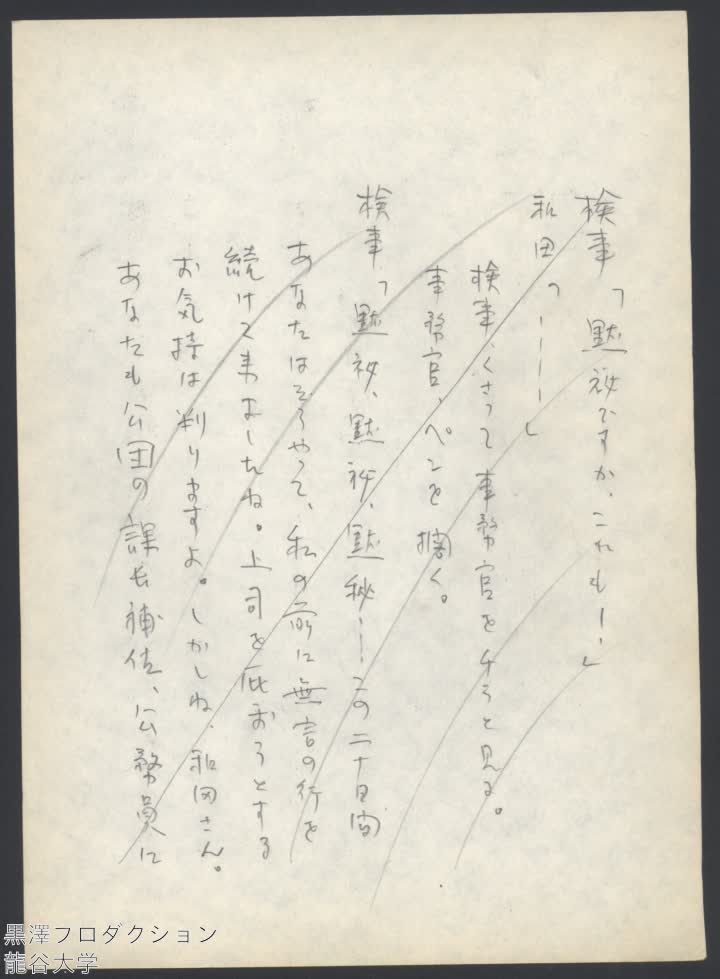 検事「黙秘ですか、これも……」
和田「…………」
検事、くさって事務官をチラと見る。
事務官、ペンを擱く。
検事「黙秘、黙秘、黙秘……この二十日間
あなたはそうやって、私の前に無言の行を
続けて来ましたね。上司を庇おうとする
お気持は判りますよ。しかしね、和田さん。
あなたも公団の課長補佐、公務員に
黒澤プロダクション
龍谷大学